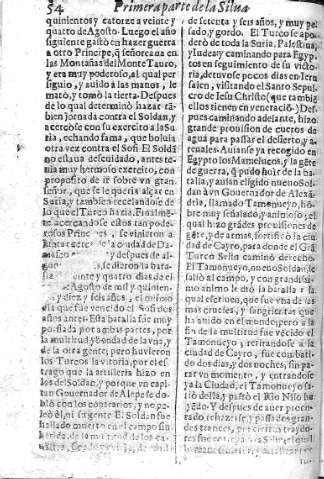 54 Primera parte de la Silua
quinientos y catorze a veinte y
quatro de Agosto. Luego el año
siguiente gastò en hazer guerra
a otro Principe, q̃ señorea ua en
las Montañas del Monte Tauro,
y era muy poderoso, al qual per
siguio, y auido a las manos, le
matò, y tomò la tierra. Despues
de lo qual determinò hazar tã-
bien jornada contra el Soldan, y
acercose con su exercito a la Su
ria, echando fama, que boluia
otra vez contra el Sofi. El Soldã
no estaua descuidado, antes te-
nia muy hermoso exercito, con
proposito de ir sobre vn gran
señor, que se le queria alçar en
Suria, y tambien recelandose de
lo que el Turco hazia. Finalmē-
te acercandose estos tan pode-
rosos se vinieron a
juntar cerca de la ciudad de Da-
y despues de al-
se dieron la bata-
veinte y quatro dias de
Agosto de mil y quinien-
y diez y seis años, el mismo
dia que fue vencido el Sofi dos
años antes. Esta batalla fue muy
porfiada por ambas partes, por
la multitud y bondad de la vna, y
de la otra gente; pero huuieron
los Turcos la vitoria, por el es-
trago que la artilleria hizo en
los del Soldan, y porque vn capi
tan Gouernador de Alepe se do-
blò con los contrarios, y no pe-
leò èl, ni su gente. El Soldan fue
hallado muerto en el campo sin
herida, de la multitud de los ca-
de setenta y seis años, y muy pe-
sado, y gordo. El Turco se apo-
derò de toda la Suria, Palestina,
y Iudea, y caminando para Egyp-
to en seguimiento de su vic̃to-
ria, detuuose pocos dias en Ieru
salen, visitando el Santo Sepul-
cro de Iesu Christo (que tambiē
ellos tienen en veneraciō.) Des-
pues caminando adelante, hizo
grande prouision de cueros de
agua para passar el desierto, y a-
renales. Auianse ya recogido en
Egypto los Mamelucos, y la gēte
de guerra, q̃ pudo huir de la ba-
talla, y auian eligido nueuo Sol-
dan à vn Gouernador de Alexã-
dria, llamado Tamonueyo, hō-
bre muy señalado, y animoso; el
qual hizo grādes preuisiones de
gēte, y de armas, fortificò la ciu-
dad de Cayro, para donde el Grã
Turco Selin caminò derecho.
El Tamonueyo, nueuo Soldan, le
saliò al campo, y con grandissi-
mo animo le diò la batalla: la
qual es cierto, que fue vna de las
mas crueles, y sangrientas que
ha auido en el mundo; pero a la
fin de la multitud fue vēcido el
Tamonueyo, retirandose a la
ciudad de Cayro, fue combati-
do dos dias, y dos noches, sin pa-
rar vn momento, y entrandose
ya la Ciudad, el Tamonueyo sa-
liò della, y passò el Rio Nilo hu
yēdo. Y despues de auer procu-
rado rehazerse, y passados gran-